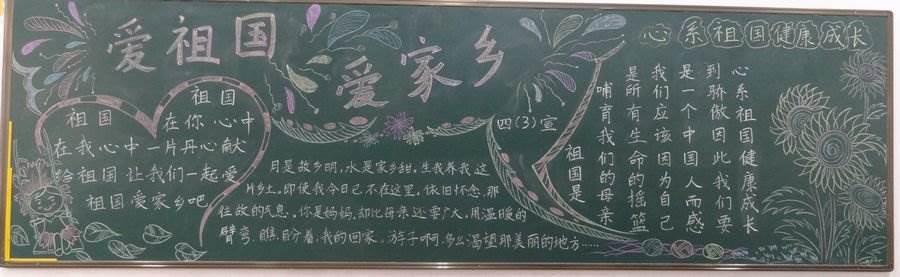 爱祖国
爱家乡
心系祖国健康成长
祖国
祖国 在你心中
在我心中一片丹心献
给祖国让我们一起爱
祖国爱家乡吧
四(3)宣
月是故乡明,水是家乡甜,生我养我这
片乡土,即使我今日已不在这里,依旧怀念,那
住故的气息。你是妈妈,却比母亲还要广大,用温暖的
臂弯,瞧,目分着,我的回家。游子啊,多么渴望那美丽的地方……
心系祖国健康成长
到骄傲因此我们要
是一个中国人而感
我们应该因为自己
是所有生命的摇篮
哺育我们的母亲
祖国是